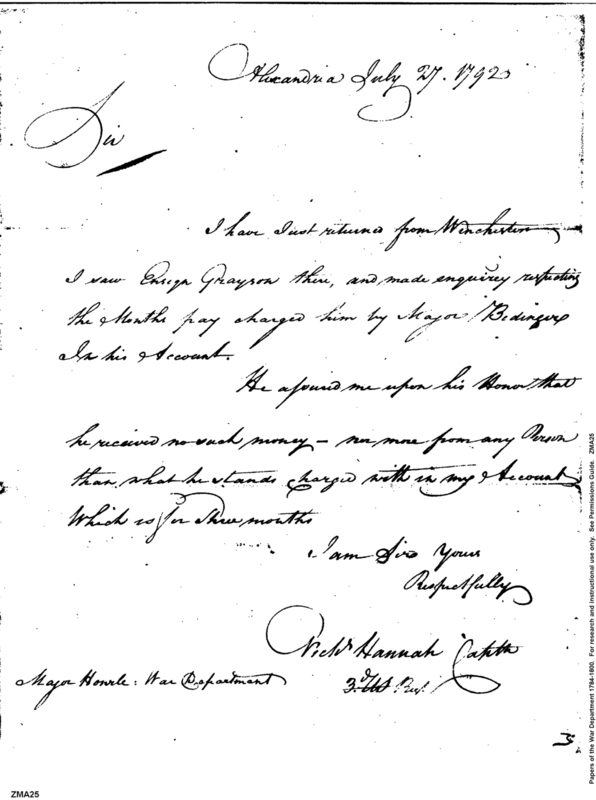 Alexandria July 27. 1792
Sir
I have Just returned from Winchester
I saw Ensign Grayson there, and made enquirey respecting
the Months pay charged him by Major Bedinger
In his Account.
He assured me upon his Honor that
he received no such money - nor more from any Person
than what he stands charged with in my Account
Which is for three months
I am Sir Yours
Respectfully
Nichs Hannah Captn
3d Regt
Major Howele: War Department
ZMA25
Papers of the War Department 1784-1800. For research and instructional use only. See Permissions Guide. ZMA25